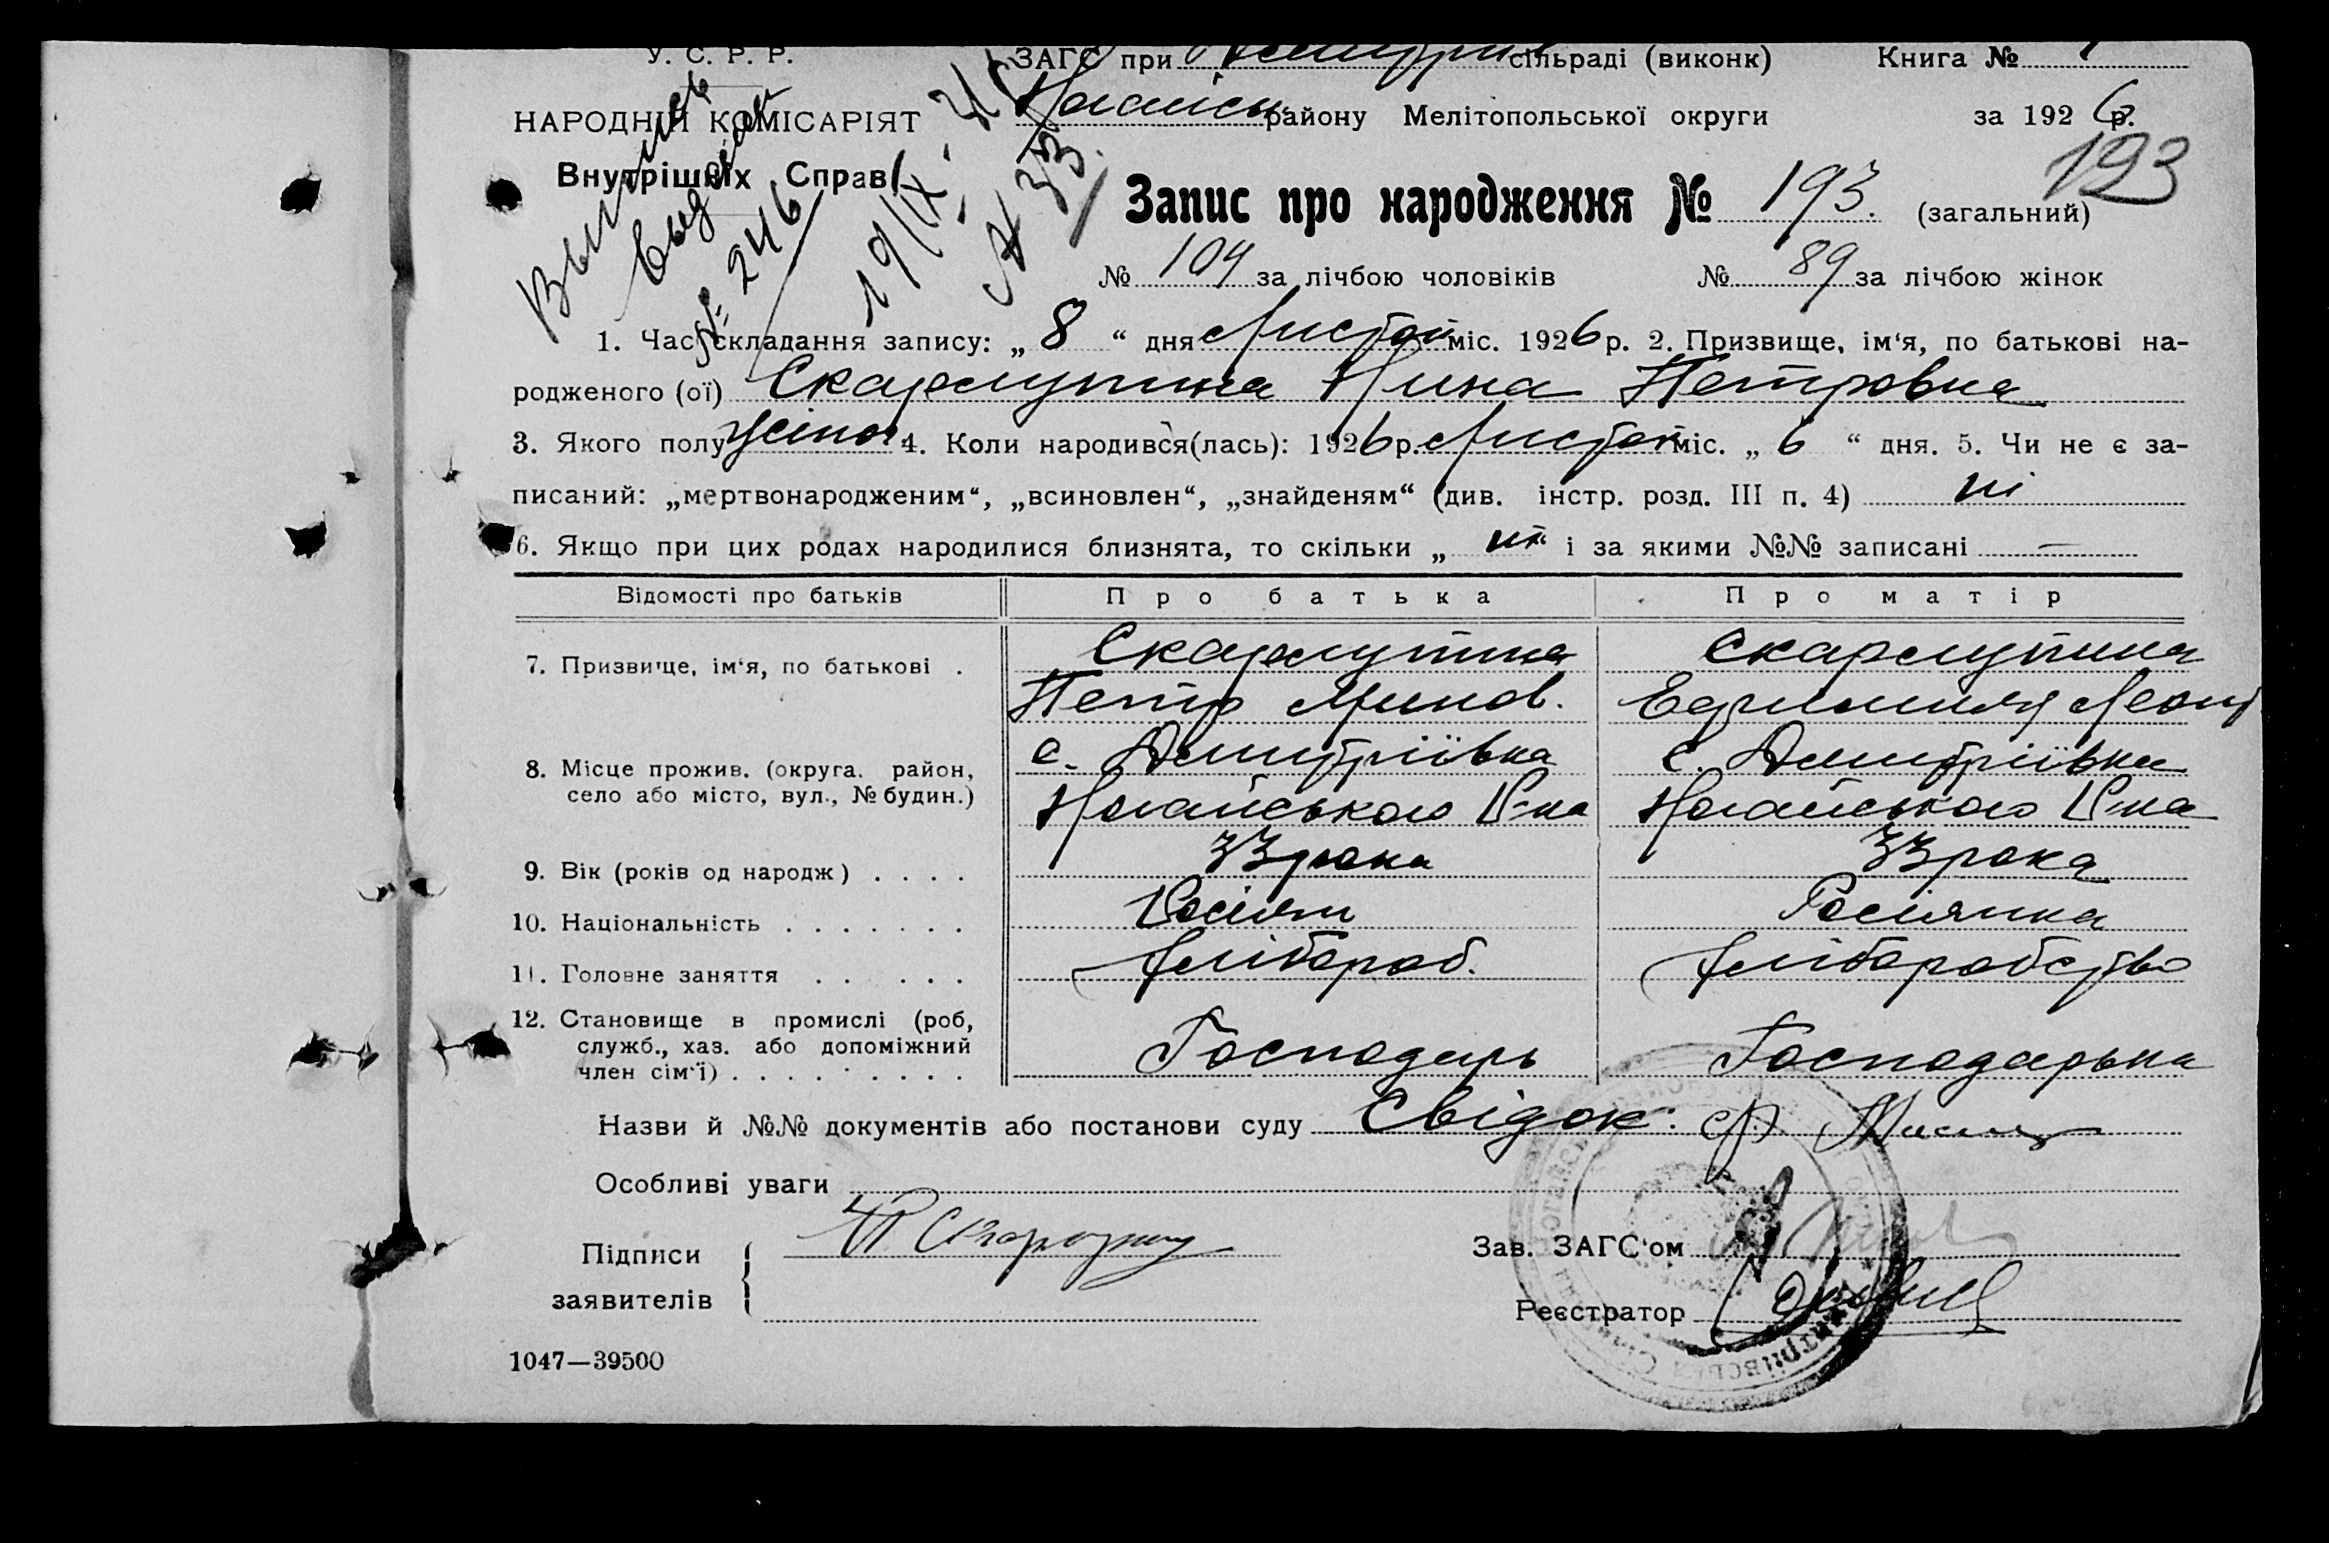 У. С. Р. Р.
ЗАГС при сільраді (виконк) Книга №
НАРОДНІЙ КОМІСАРІЯТ
района Мелітопольської округи за 1926 р.
Внутрішніх Справ
193
Выпись
выдана
№ 246
19/IX-
Запис про народження № 193. (загальний)
№ 104 за лічбою чоловіків № 89 за лічбою жінок
1. Час складання запису: „ 8 “ дня Листоп міс. 1926 р. 2. Призвище, ім‘я, по батькові на-
родженого (ої) Скармутина Нина Петровна
3. Якого полу жіноч 4. Коли народився(лась): 1926 р. Листоп міс. „ 6 “ дня. 5. Чи не є за-
писаний: „мертвонародженим“, „всиновлен“, „знайденям“ (див. інстр. розд. III п. 4) ні
6. Якщо при цих родах народилися близнята, то скільки „ ні “ і за якими №№ записані —
Відомості про батьків Про батька Про матір
7. Призвище, ім‘я, по батькові . Скармутина Скармутина
Петр
8. Місце прожив. (округа. район, с. Дмитріївка с. Дмитріївка
село або місто, вул., № будин.) Ногайського Р-на Ногайського Р-на
9. Вік (років од народж) . . . . 33 рока 33 рока
10. Національність . . . . . . . Росіян Росіянка
11. Головне заняття . . . . . Хлібороб. Хліборобство
12. Становище в промислі (роб,
служб., хаз. або допоміжний Господарь Господарька
член сім‘ї) . . . . . . . . .
Назви й №№ документів або постанови суду Свідок:
Особливі уваги
Підписи
заявителів
Зав. ЗАГС‘ом
Реєстратор
1047—39500